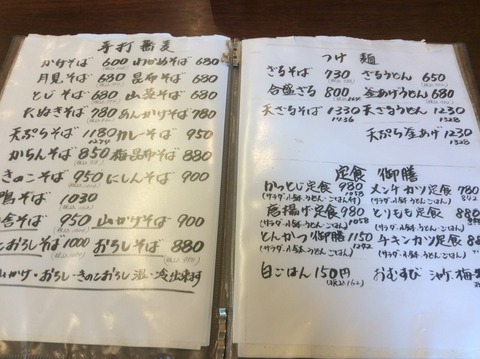 手打蕎麦
かけそば 600 わかめそば 680
月見そば 680 昆布そば 680
とじそば 680 山菜そば 680
たぬきそば 780 あんかけそば 780
天ぷらそば 1180 カレーそば 950
1274
かちんそば 850 梅昆布そば 880
きのこそば 950 にしんそば 900
鴨そば 1030
舎そば 950 山かけそば 900
おろしそば 1000 おろしそば 880
山かけ・おろし・きのこおろし 温・冷出来ます
つけ麺
ざるそば 730 ざるうどん 650
合盛ざる 800 釜あげうどん 680
天ざるそば 1330 天ざるうどん 1230
1436 1328
天ぷら釜あげ 1230
1328
定食 御膳
かつとじ定食 980 メンチカツ定食 780
1058
(サラダ・小鉢・うどん・ごはん付)
唐揚げ定食 980 とりもも定食 880
1058
(サラダ・小鉢・うどん・ごはん付)
とんかつ御膳 1150 チキンカツ定食 880
1242
(サラダ・小鉢・うどん・ごはん付)
白ごはん 150円 おむすび
(税込162)